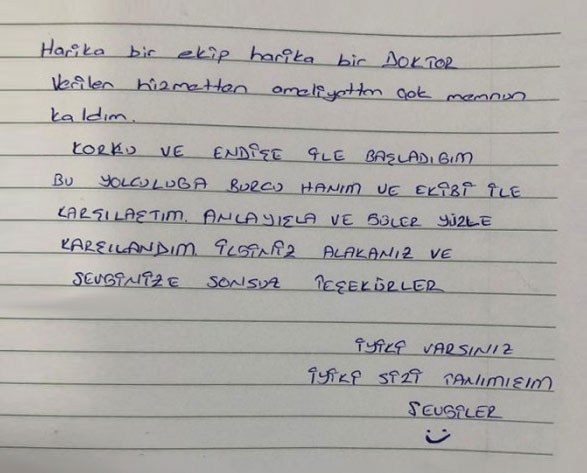 Harika bir ekip harika bir DOKTOR
Verilen hizmetten ameliyattan çok memnun
kaldım.
KORKU VE ENDİŞE İLE BAŞLADIĞIM
BU YOLCULUĞA BURCU HANIM VE EKİBİ İLE
KARŞILAŞTIM. ANLAYIŞLA VE GÜLER YÜZLE
KARŞILANDIM İLGİNİZ ALAKANIZ VE
SEVGİNİZE SONSUZ TEŞEKÜRLER
İYİKİ VARSINIZ
İYİKİ SİZİ TANIMIŞIM
SEVGİLER